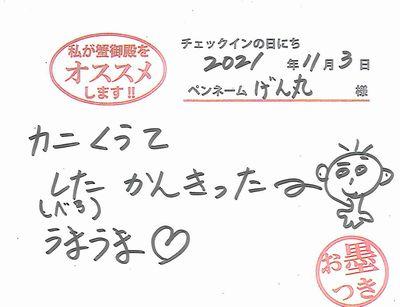 私が蟹御殿を
オススメ
します!!
チェックインの日にち
2021年11月3日
ペンネーム げん丸 様
カニくうて
した かんきった〜
(べろ)
うまうま♡
お墨
つき